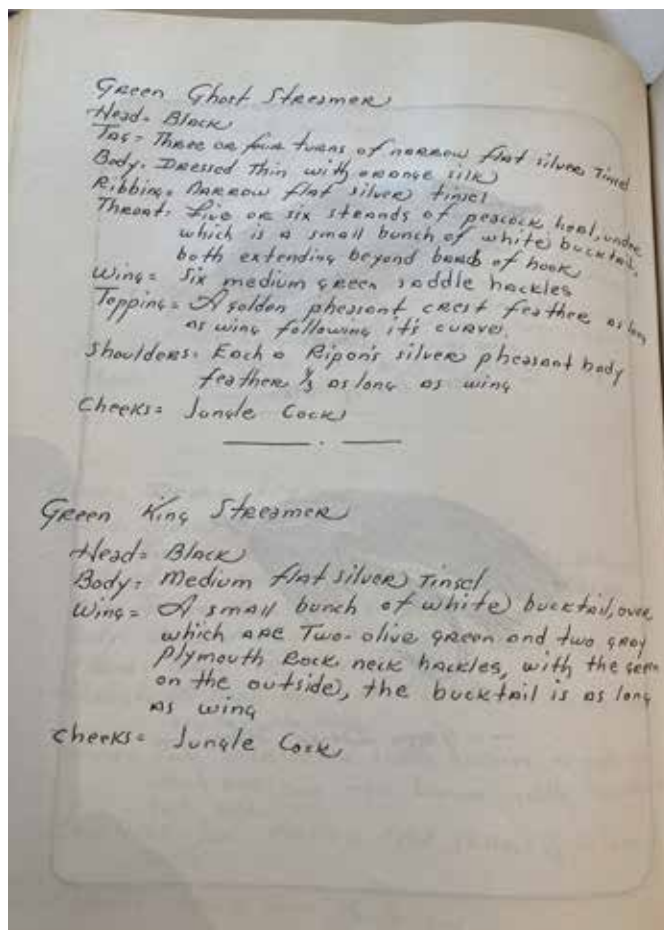 Green Ghost Streamer
Head = Black
Tag = Three or four turns of narrow flat silver Tinsel
Body. Dressed Thin with orange silk
Ribbing = narrow flat silver tinsel
Throat. Five or six strands of peacock herl, under
which is a small bunch of white bucktail,
both extending beyond barb of hook
Wing = Six medium green saddle hackles
Topping = A golden pheasant crest feather as long
as wing following it's curve.
Shoulders. Each a Ripon's silver pheasant body
feather 1/3 as long as wing
Cheeks = Jungle Cock
Green King Streamer
Head = Black
Body = Medium flat silver Tinsel
Wing = A small bunch of white bucktail, over
which are Two-olive green and two gray
Plymouth Rock neck hackles, with the green
on the outside, the bucktail is as long
as wing
Cheeks = Jungle Cock